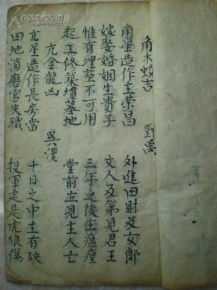 角木蛟吉 鄧禹
角星造作主榮昌 外進田財及女郎
嫁娶婚姻生貴子 文人及第見君王
惟有埋葬不可用 三年之後主瘟
起工修築墳墓地 堂前立見主人亡
亢金龍凶 吳漢
亢星造作長房當 十日之中主有殃
田地消磨官失職 投軍定是虎狼傷